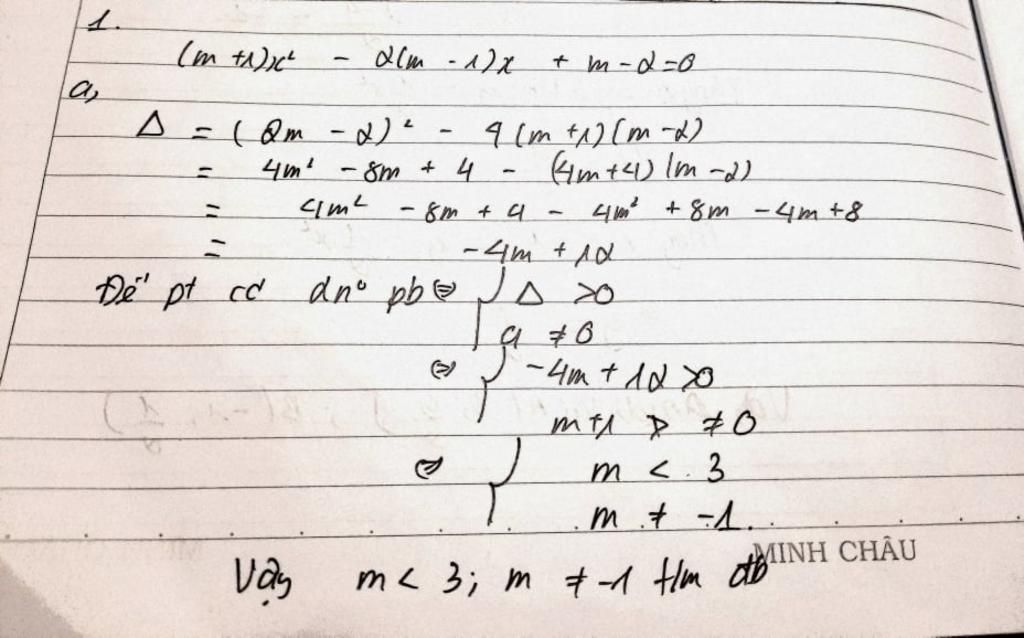 1.
(m+1)x² - 2(m-1)x + m-2=0
a,
Δ = (2m - 2)² - 4(m+1)(m-2)
= 4m² - 8m + 4 - (4m+4)(m-2)
= 4m² - 8m + 4 - 4m² + 8m - 4m + 8
= -4m + 12
Để pt có 2n⁰ pb ⇔ { Δ >0
a ≠ 0
⇔ { -4m + 12 >0
m+1 ≠ 0
⇔ { m < 3
m ≠ -1
MINH CHÂU
Vậy m < 3; m ≠ -1 t/m đb